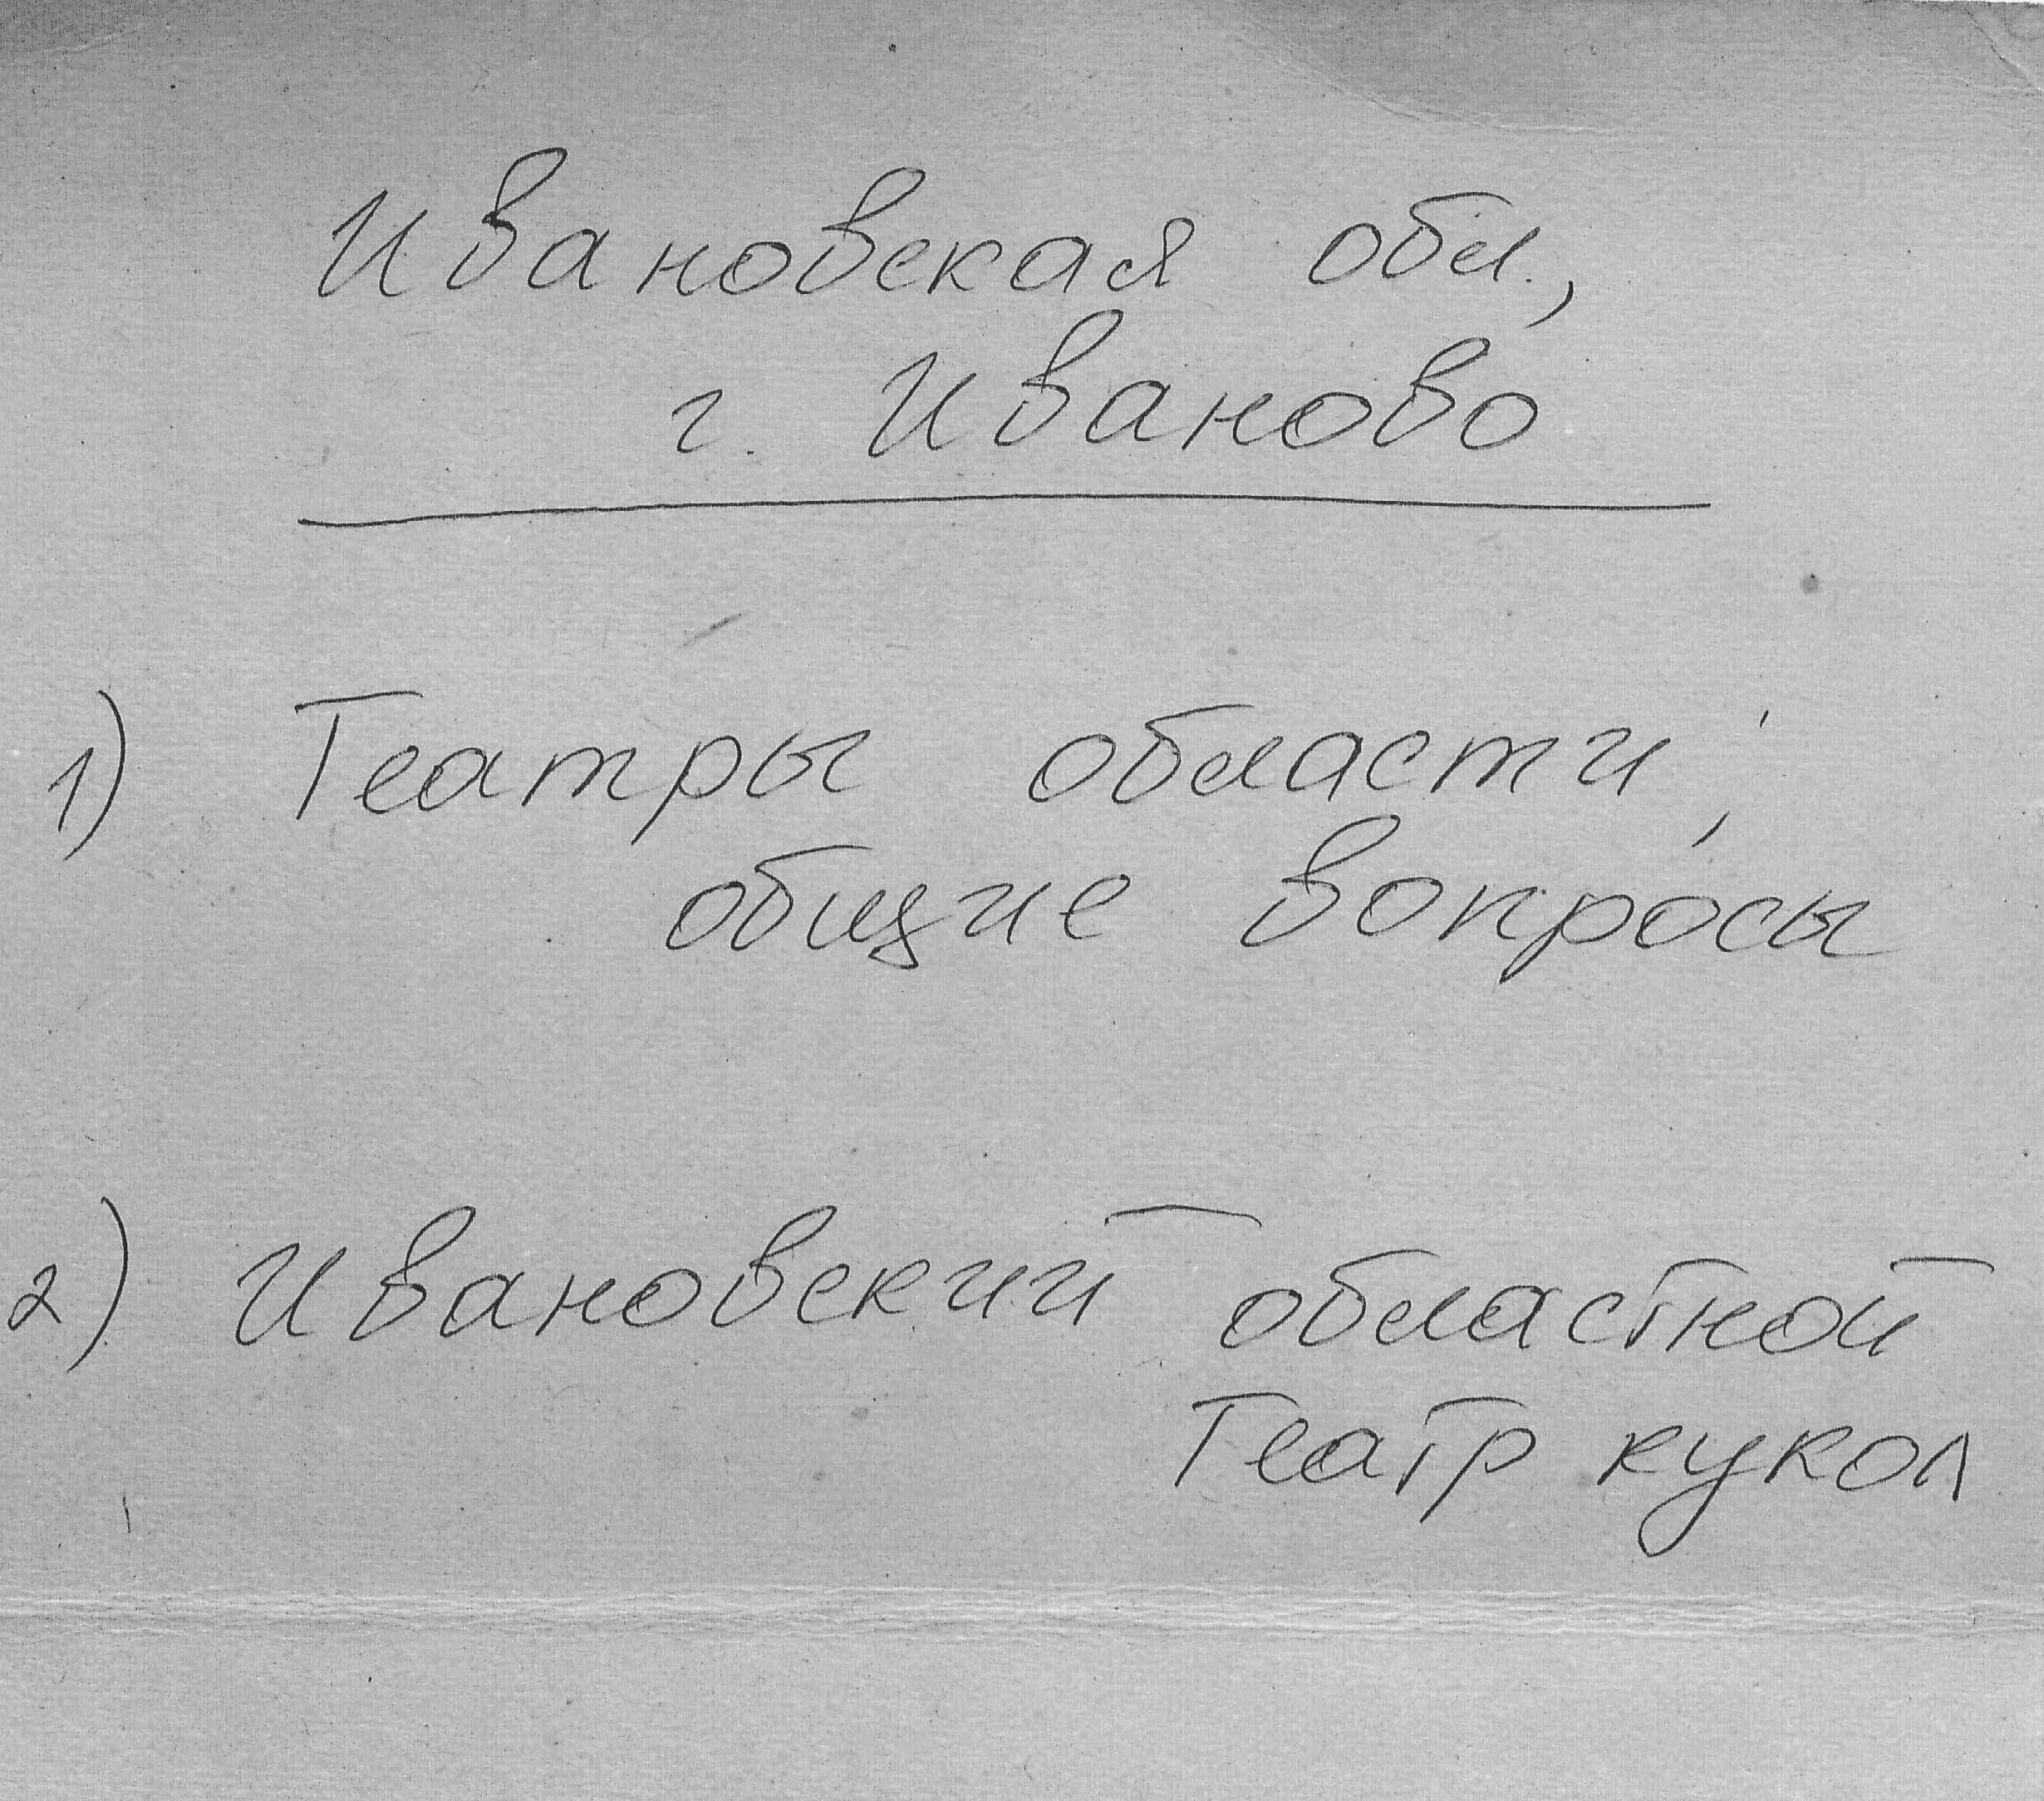 Ивановская обл.,
г. Иваново
1) Театры области,
общие вопросы
2) Ивановский областной
театр кукол